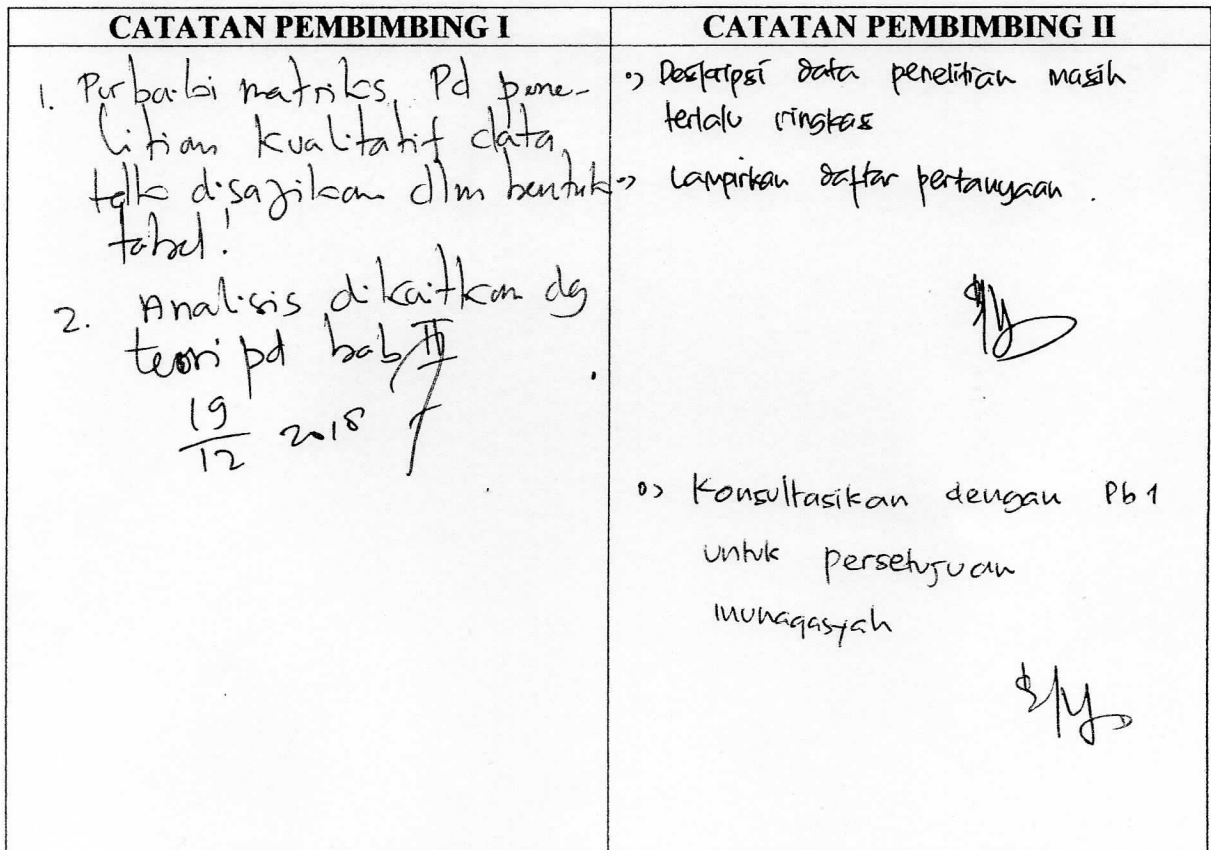 CATATAN PEMBIMBING I
1. Perbaiki matriks, Pd pene-
litian kualitatif data,
tdk disajikan dlm bentuk
tabel!
2. Analisis dikaitkan dg
teori pd bab II
19/12 2018
CATATAN PEMBIMBING II
Deskripsi data penelitian masih
terlalu ringkas
Lampirkan daftar pertanyaan.
Konsultasikan dengan Pb 1
untuk persetujuan
munaqasyah